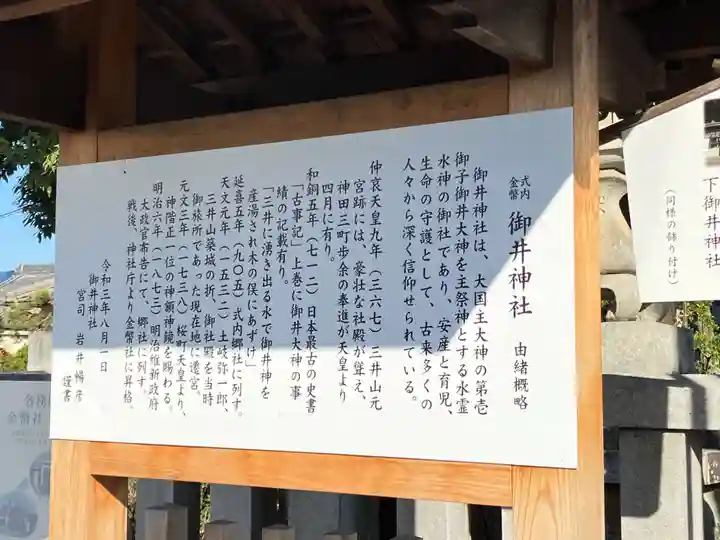 式内
金幣
御井神社 由緒概略
御井神社は、大国主大神の第壱
御子御井大神を主祭神とする水霊
水神の御社であり、安産と育児、
生命の守護として、古来多くの
人々から深く信仰せられている。
仲哀天皇九年(三六七)三井山元
宮跡には、豪壮な社殿が聳え、
神田三町歩余の奉進が天皇より
四月に有り。
和銅五年(七一二)日本最古の史書
「古事記」上巻に御井大神の事
績の記載有り。
「三井に湧き出る水で御井神を
産湯され木の俣にあずけ」
延喜五年(九〇五)式内郷社に列す。
天文元年(一五三二)土岐弥一郎、
三井山築城の折、御社殿を当時
御旅所であった現在地に遷宮。
元文三年(一七三八)桜町天皇より、
神階正一位の神額神鏡を賜わる。
明治六年(一八七三)明治維新政府
大政官布告にて、郷社に列す。
戦後、神社庁より金幣社に昇格。
令和三年八月一日
御井神社
宮司 岩井暢彦
謹書
下御井神
(同様の飾り付け)